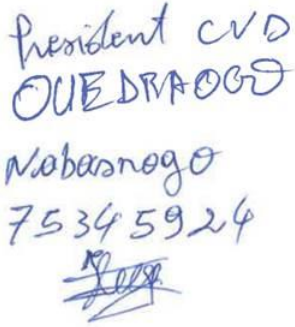 President CVD
OUEDRAOGO
Nabasnogo
75345924